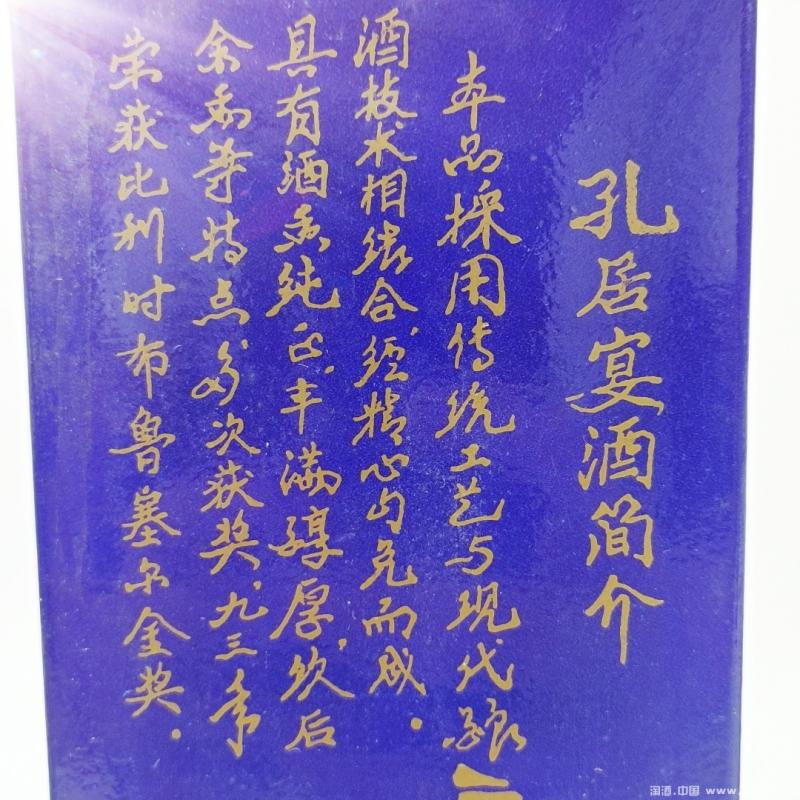 孔居宴酒简介
本品採用传统工艺与现代酿
酒技术相结合，经精心勾兑而成。
具有酒香纯正，丰满醇厚，饮后
余香等特点，多次获奖，九三年
荣获比利时布鲁塞尔金奖。
淘酒.中国 www.